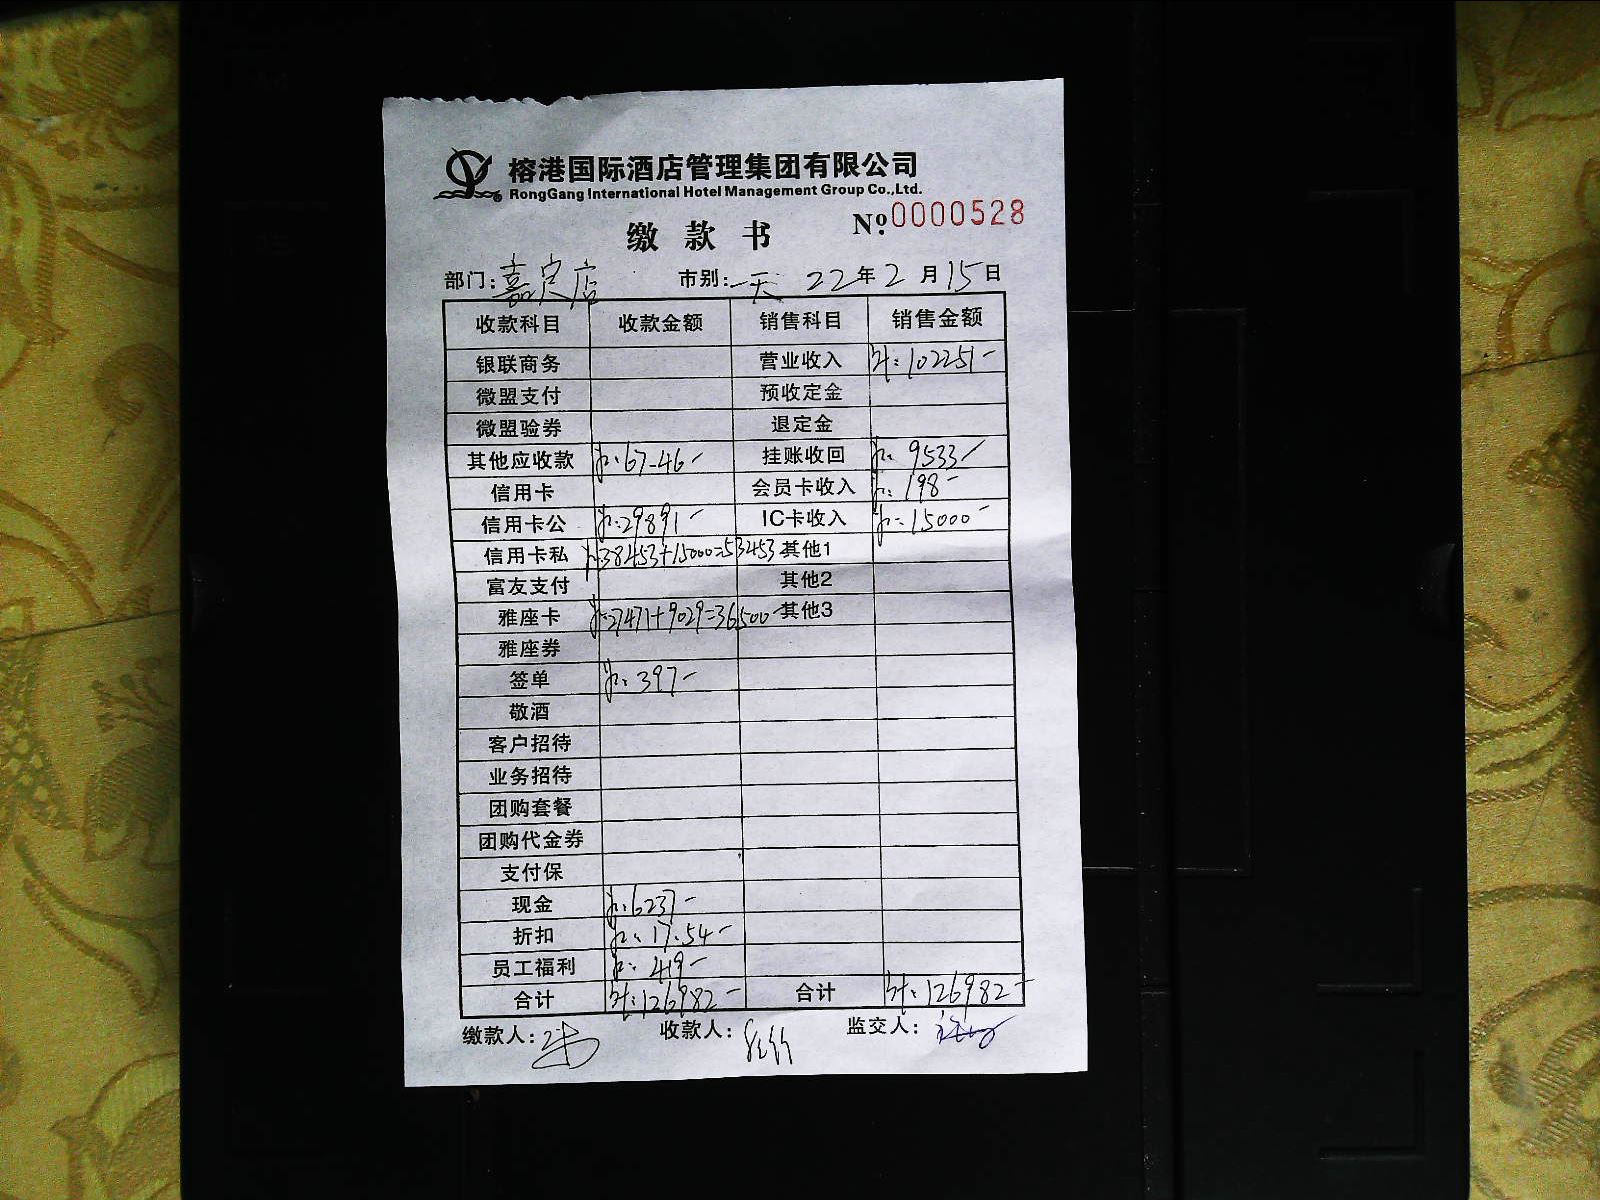 榕港国际酒店管理集团有限公司
RongGang International Hotel Management Group Co.,Ltd.
缴款书 №:0000528
部门:嘉定店 市别:一天 22年2月15日
收款科目 收款金额 销售科目 销售金额
银联商务 营业收入 计:102251-
微盟支付 预收定金
微盟验券 退定金
其他应收款 67-46- 挂账收回 9533-
信用卡 会员卡收入 198-
信用卡公 29891- IC卡收入 15000-
信用卡私 38453+15000=53453 其他1
富友支付 其他2
雅座卡 27471+9029=36500- 其他3
雅座券
签单 397-
敬酒
客户招待
业务招待
团购套餐
团购代金券
支付保
现金 6237-
折扣 17.54-
员工福利 419-
合计 计:126982- 合计 计:126982-
缴款人: 收款人: 监交人: